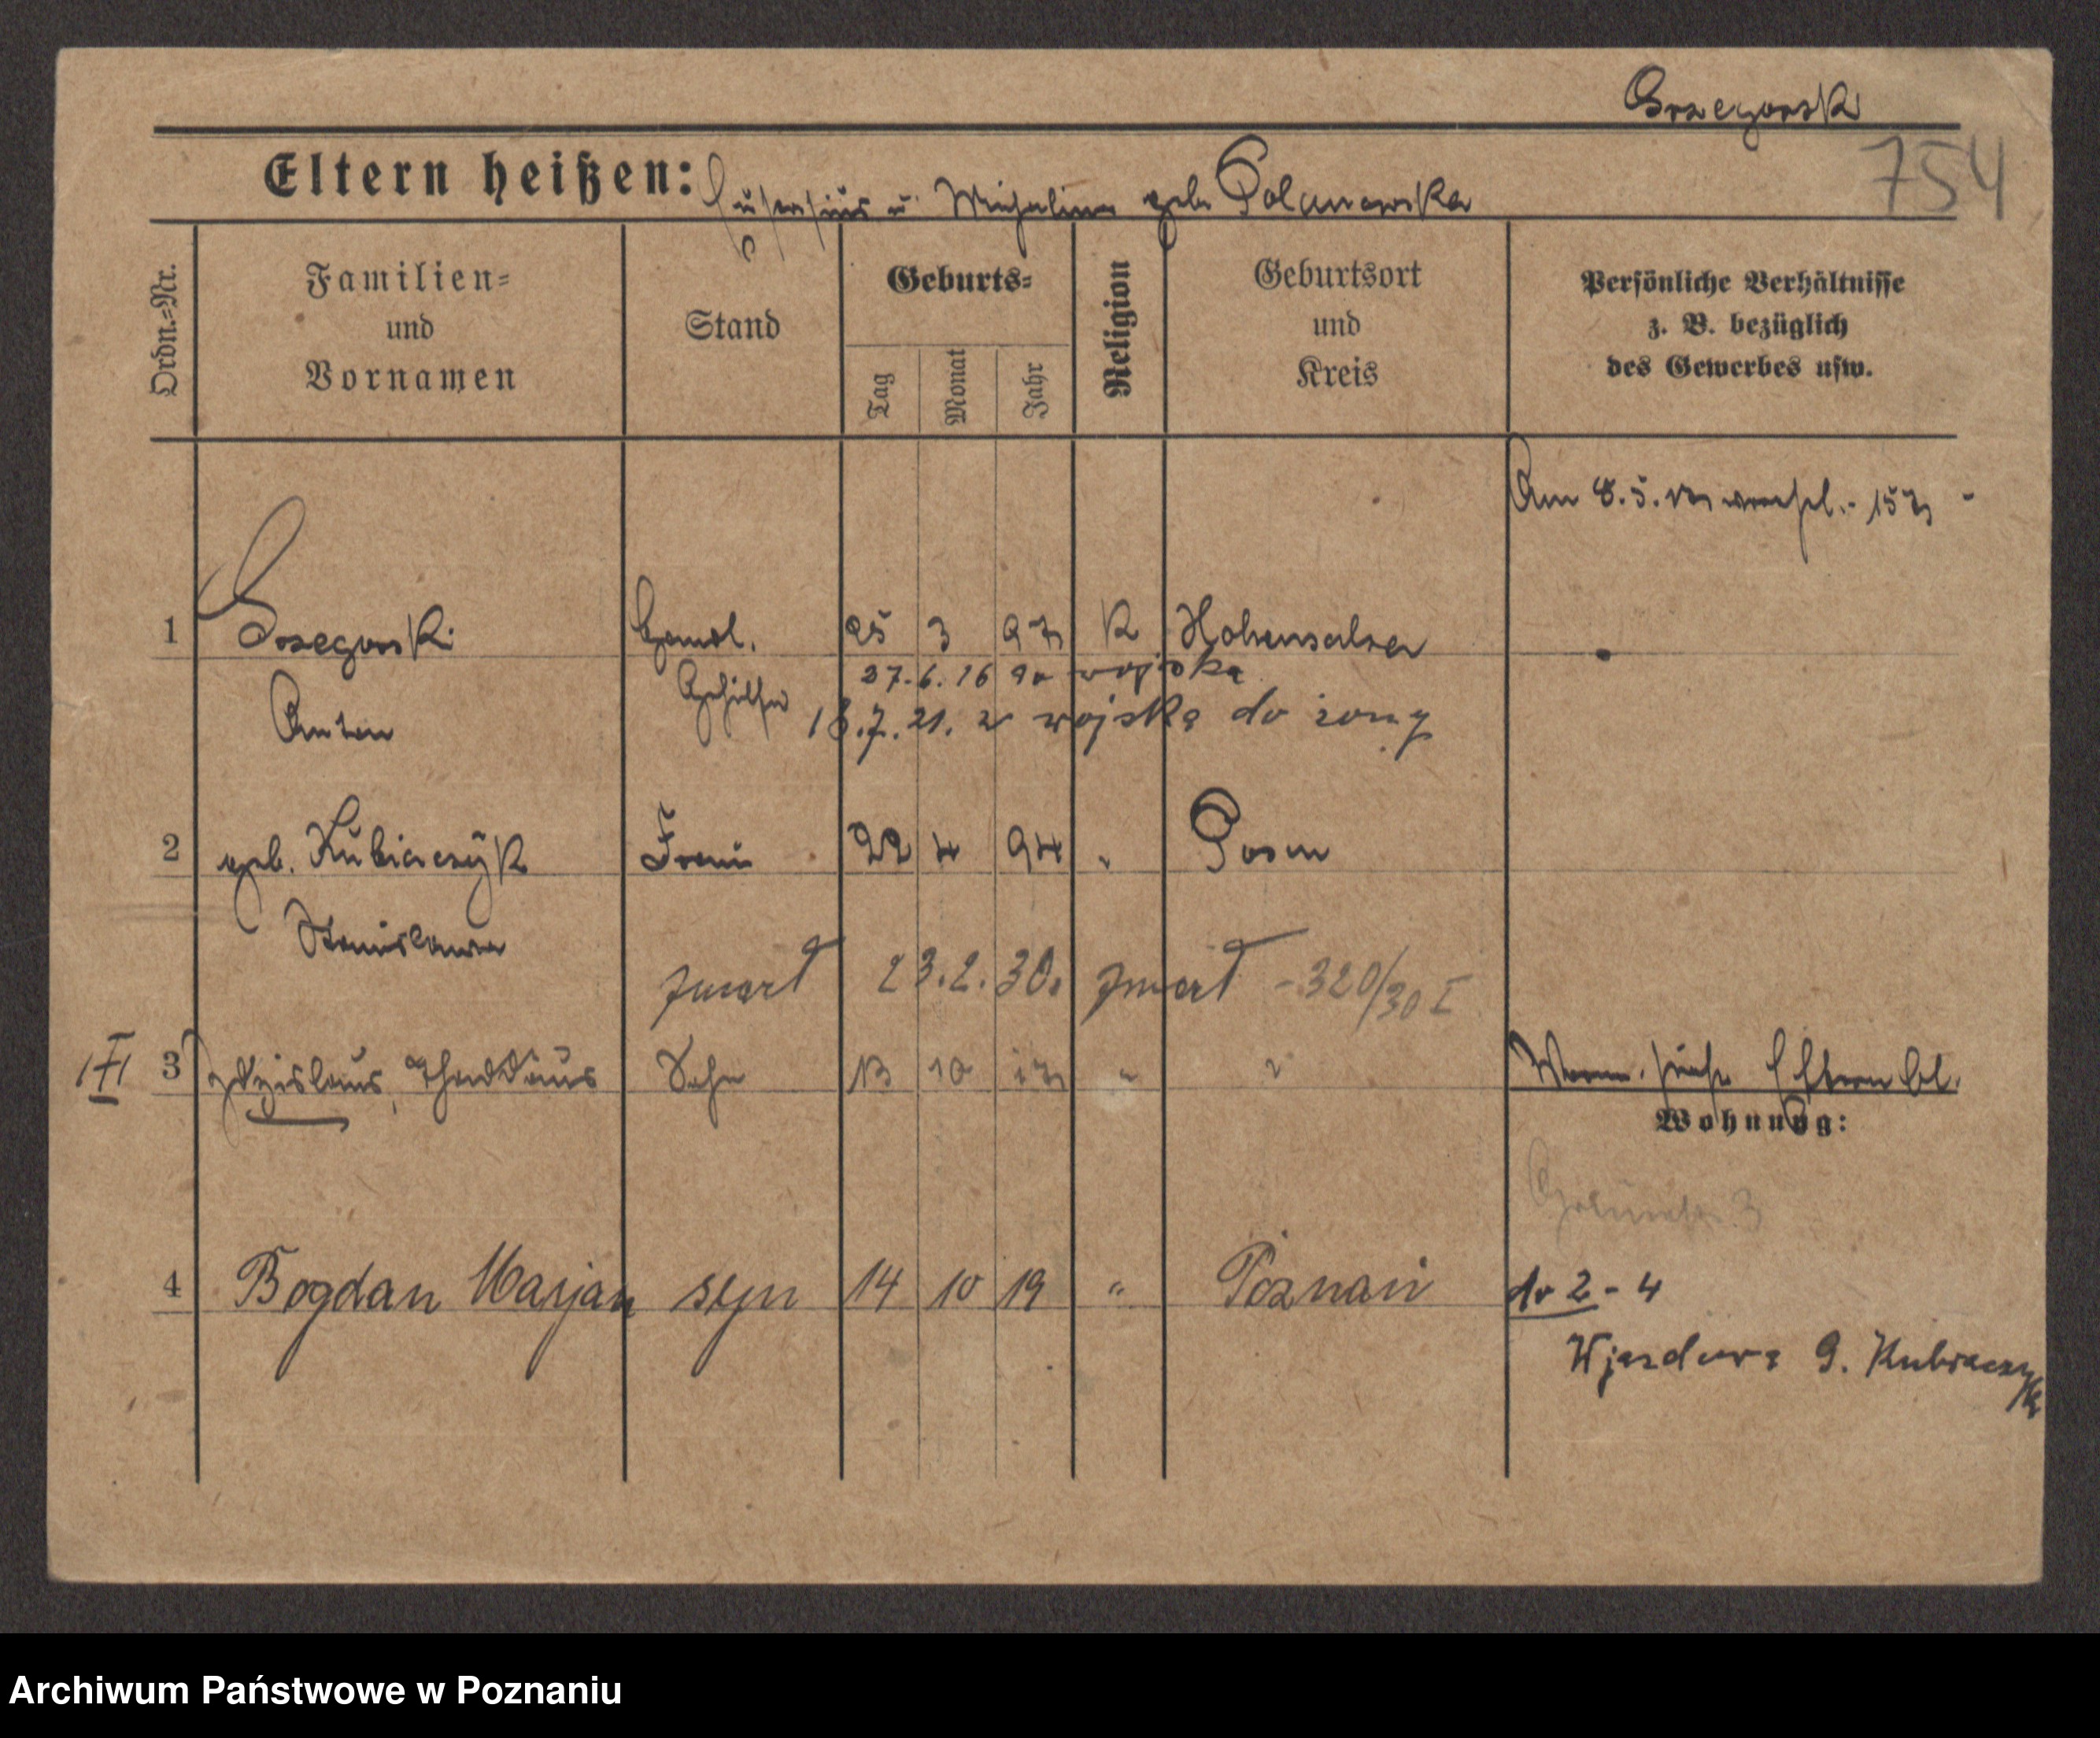 Grzegorski
754
Eltern heißen: u. Michalina geb. Polanowska
Ordn.=Nr.
Familien=
und
Vornamen
Stand
Geburts=
Tag
Monat
Jahr
Religion
Geburtsort
und
Kreis
Persönliche Verhältnisse
z. B. bezüglich
des Gewerbes usw.
Am 8.5.
1 Grzegorski Handl. 25 3 97 K Hohensalza
Gehilfe 27.6.16 do wojska
Anton 18.7.21. z wojska do żony
2 geb. Kubiaczyk Frau 22 4 94 " Posen
Stanislawa
zmarł 23.2.30. zmarł - 320/30 I
3 Zdzislaus, Thaddäus Sohn 13 10 17 " "
siehe Elternbl.
Wohnung:
4 Bogdan Marjan syn 14 10 19 " Poznań
do 2 - 4
Wjazdowa 9. Kubiaczyk
Archiwum Państwowe w Poznaniu